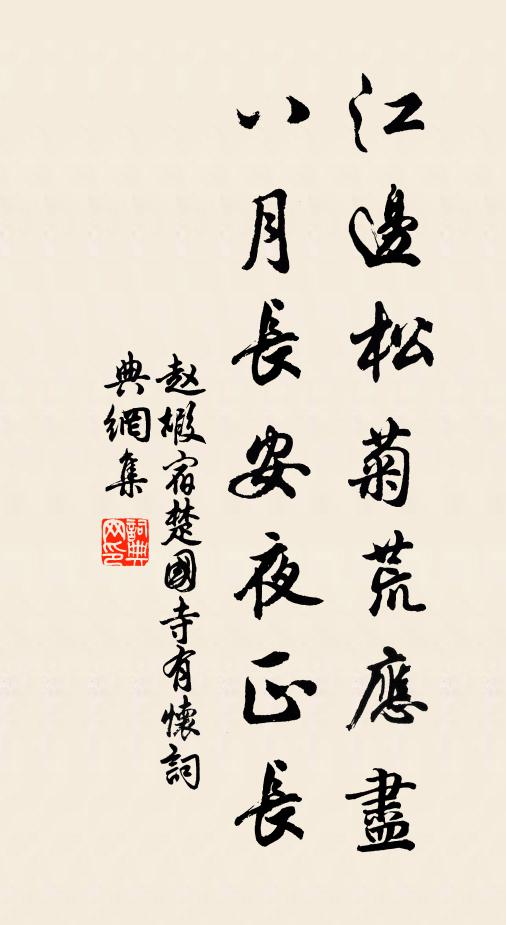 江邊松菊荒應盡
八月長安夜正長
赵嘏宿楚國寺有懷詞
典網集
詞典网印